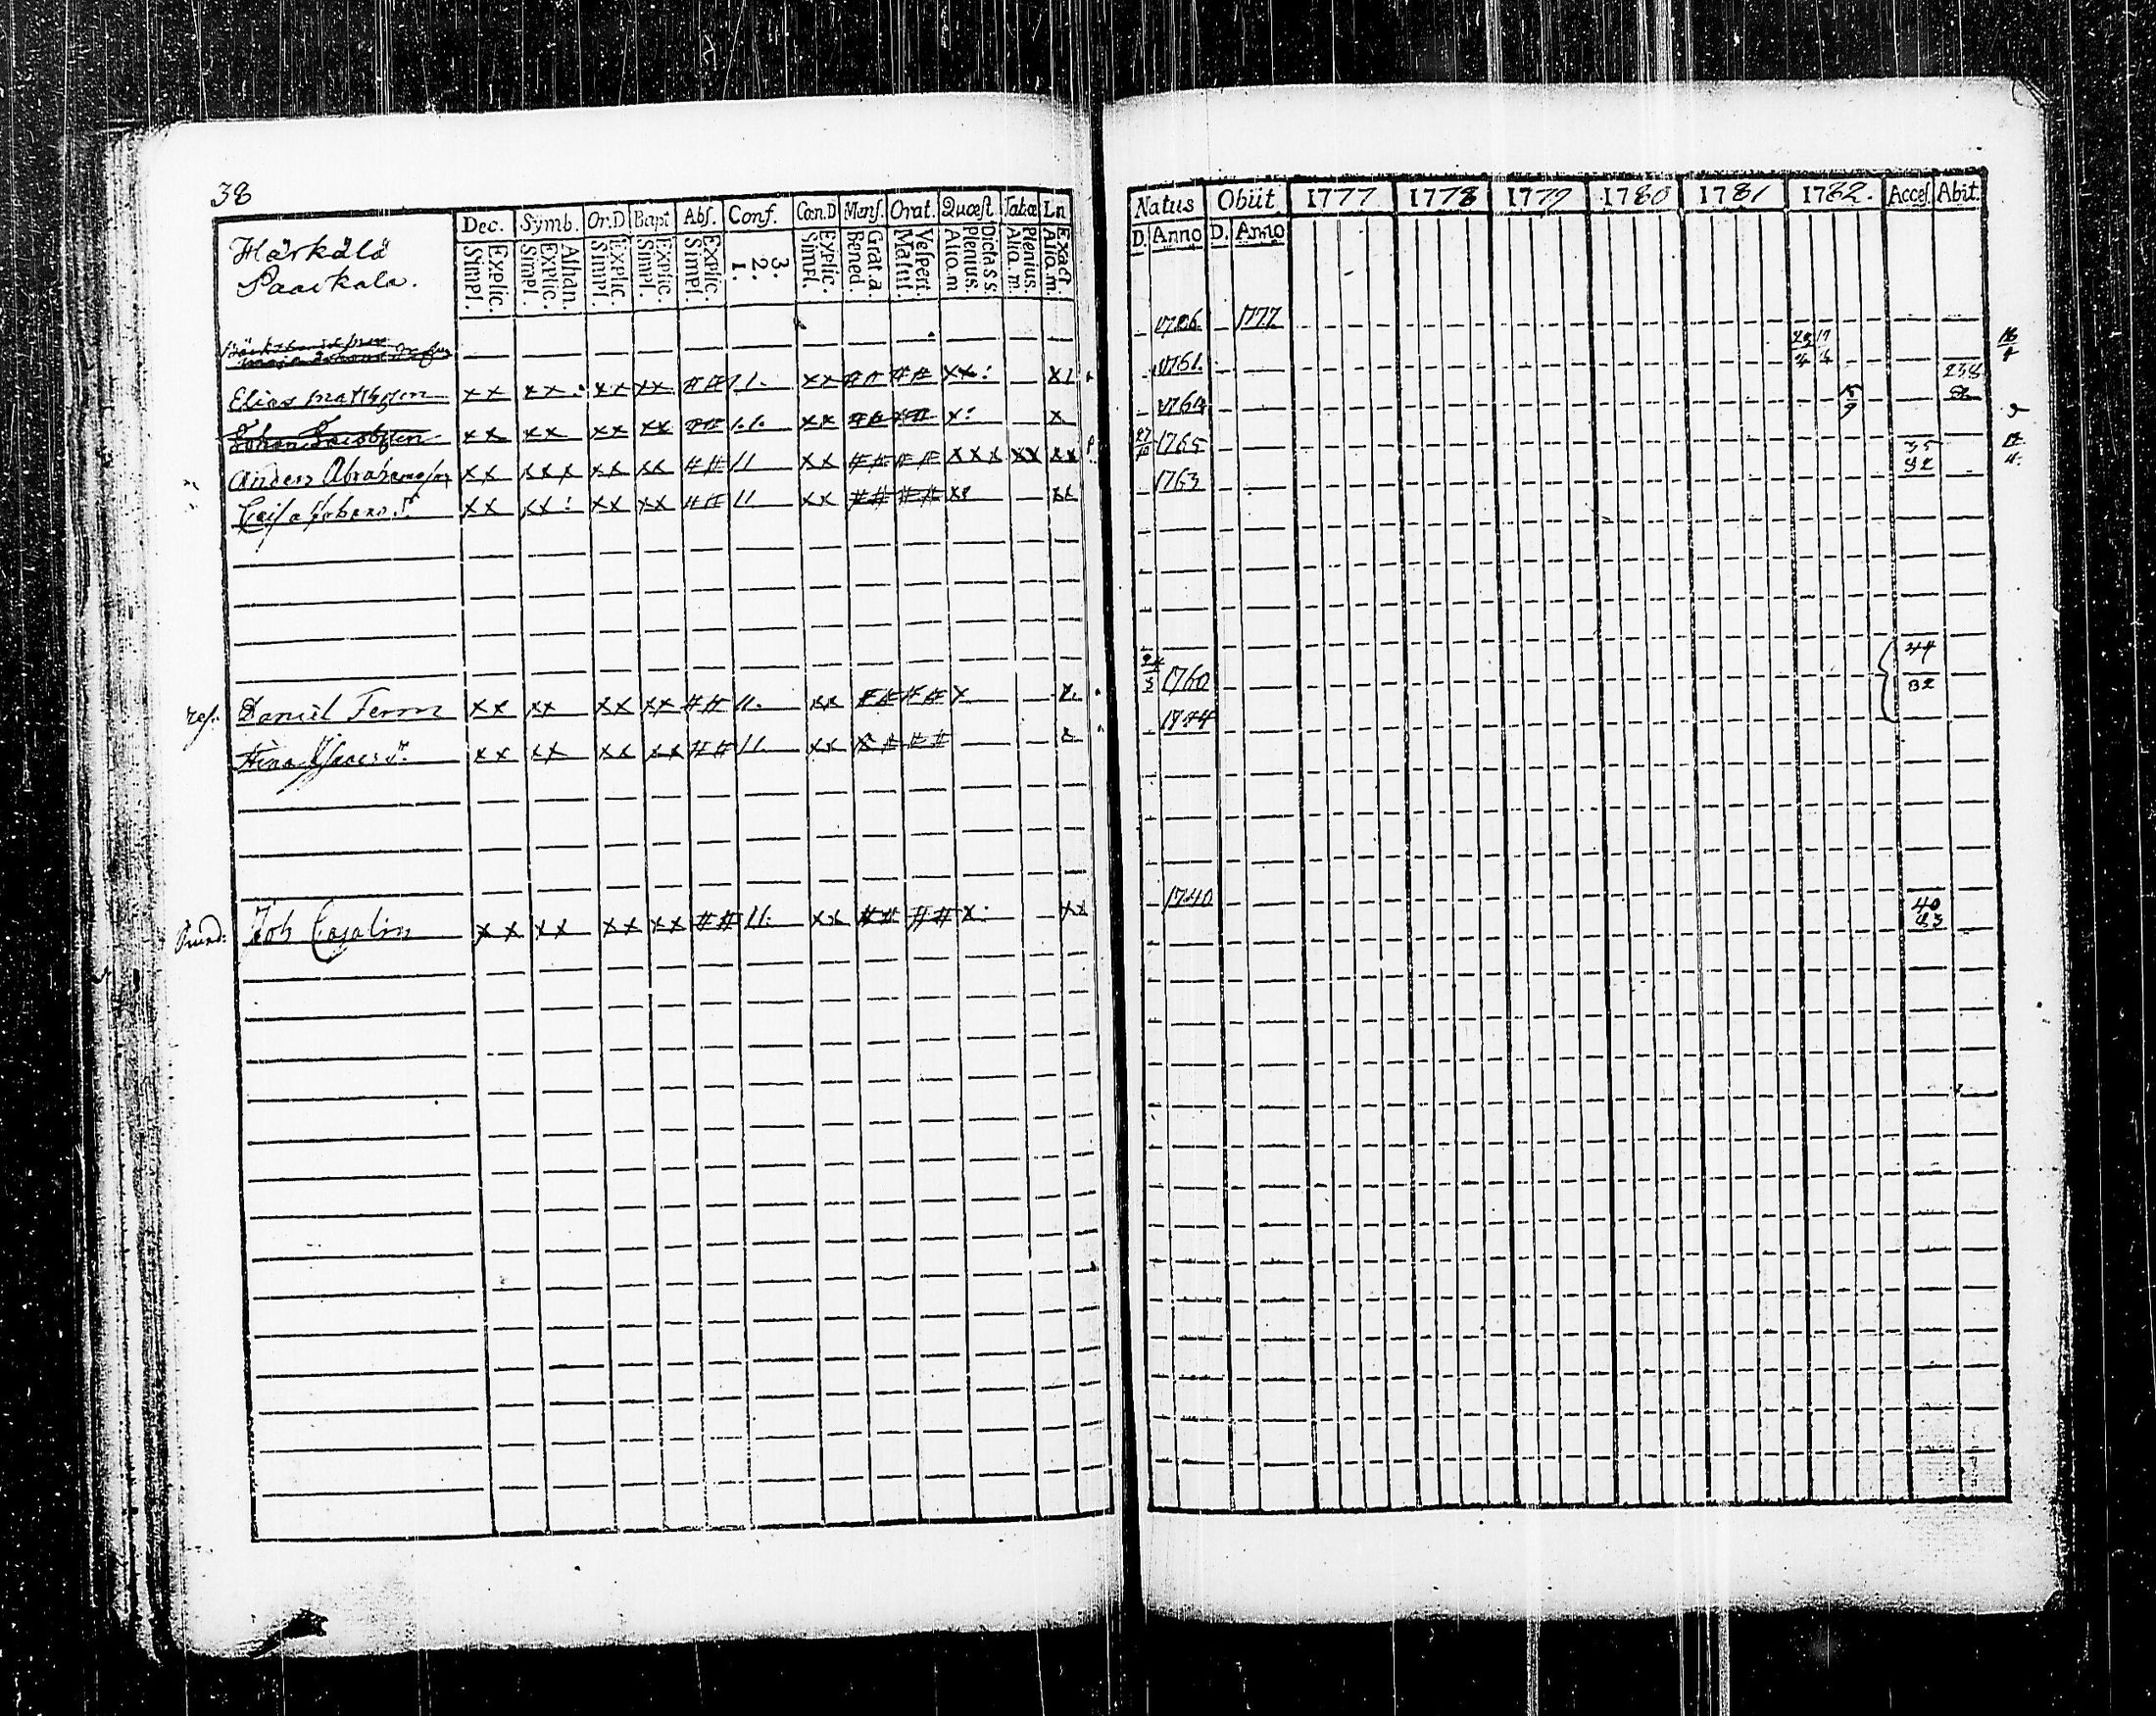 38
Härkälä
Paackala.
Dec. Symb. Or.D Bapt Abs. Conf. Cœn.D Mens. Orat. Quæst Tabæ Ln
Simpl. Explic. Simpl. Explic. Athan. Simpl. Explic. Simpl. Explic. Simpl. Explic. 1. 2. 3. Simpl. Explic. Bened. Grat.a. Matut. Vespert. Alio.m Plenius. Dicta s s. Aliq.m Plenius. Alio.m. Exact.
Natus Obiit 1777 1778 1779 1780 1781 1782. Acces. Abit.
D. Anno D. Anno
1777
Elias Matthsson xx xx xx xx ## 11. xx ## ## xx: x1 1761.
Johan xx xx xx xx ## 1.1. xx ## ## x: x 1764
Anders Abrahamsson xx xxx xx xx ## 11 xx ## ## xxx xx xx 27/10 1765 35 82
Caisa Johans D. xx xx: xx xx ## 11 xx ## ## x: xx 1763
Daniel Ferm xx xx xx xx ## 11. xx ## ## x x. 24/3 1760 44 82
xx xx xx xx ## 11. xx ## ## x 1744
Joh Cajalin xx xx xx xx ## 11. xx ## ## x. xx 1740 40 83